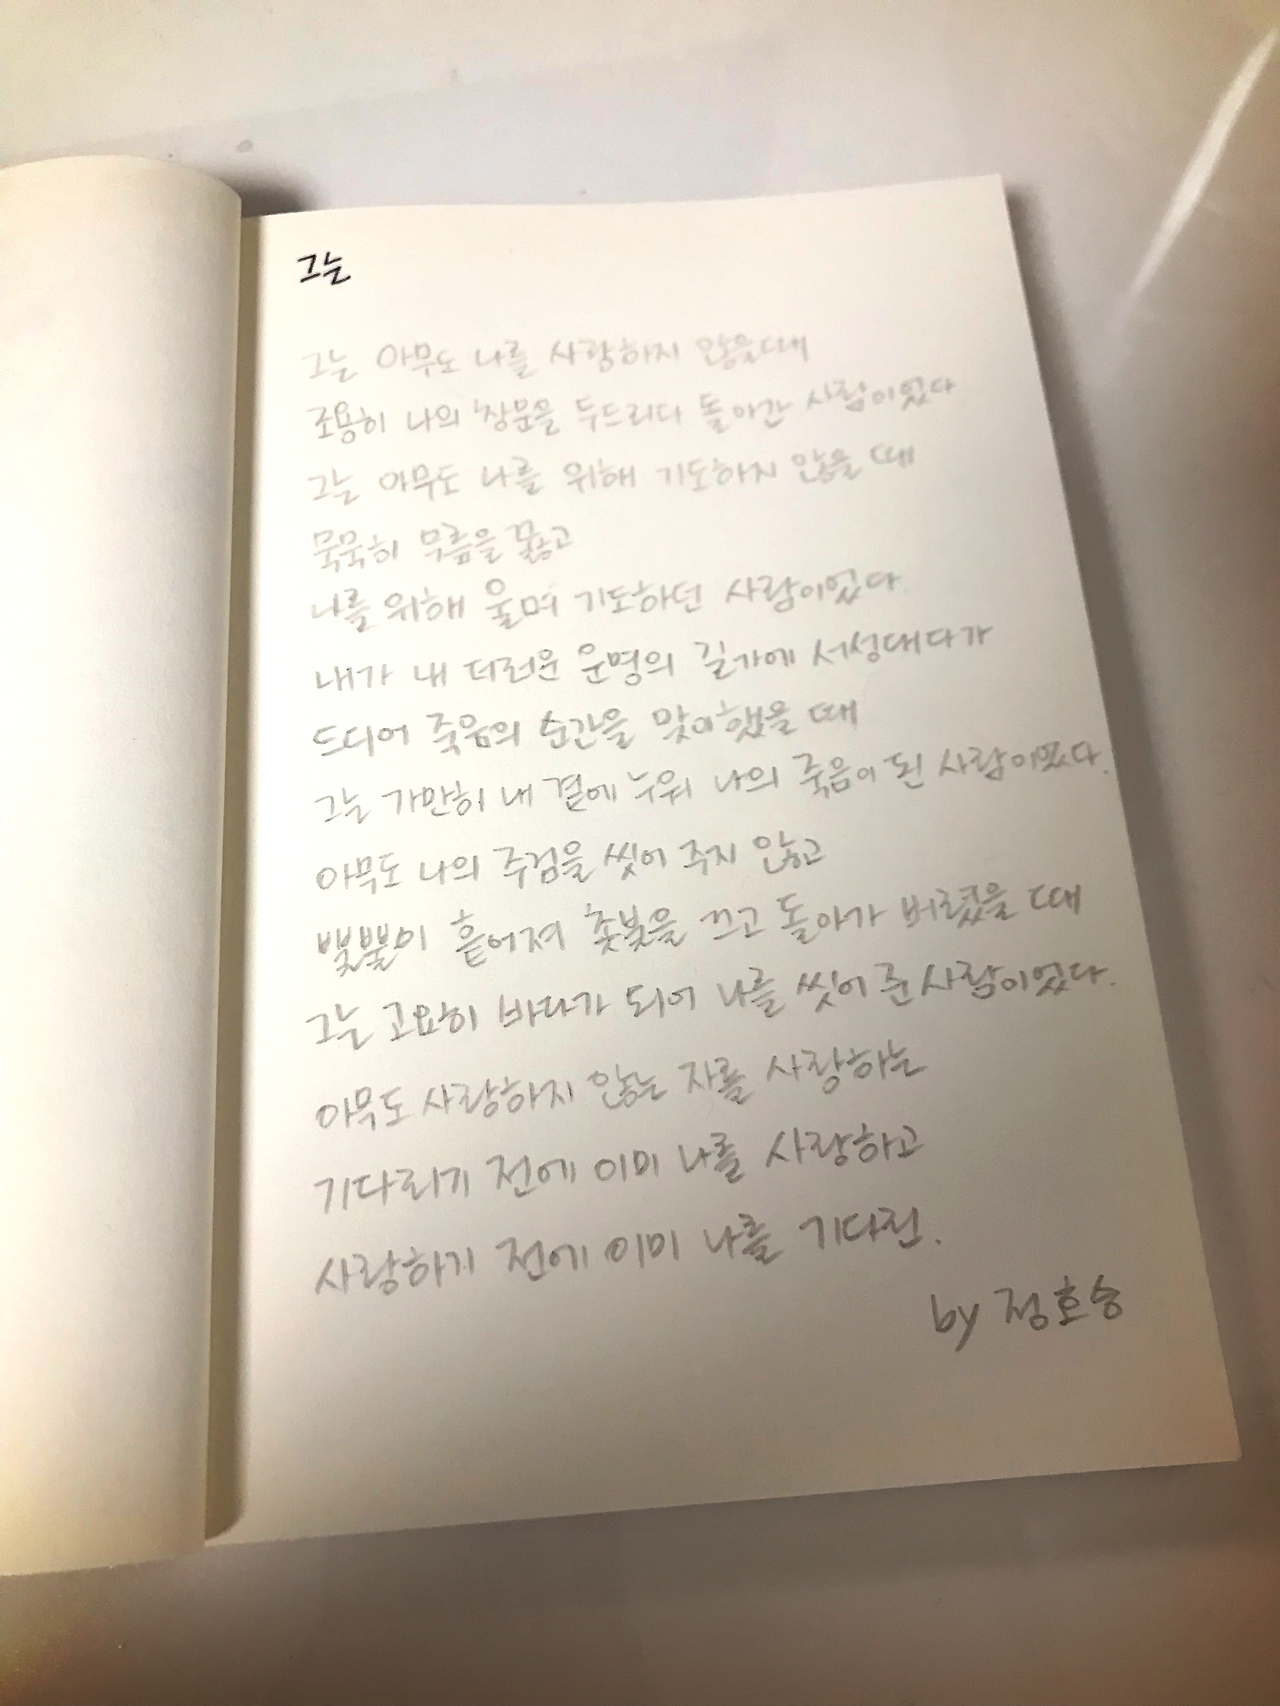 그는
그는 아무도 나를 사랑하지 않을때
조용히 나의 창문을 두드리다 돌아간 사람이었다
그는 아무도 나를 위해 기도하지 않을 때
묵묵히 무릎을 꿇고
나를 위해 울며 기도하던 사람이었다
내가 내 더러운 운명의 길가에 서성대다가
드디어 죽음의 순간을 맞이했을 때
그는 가만히 내 곁에 누워 나의 죽음이 된 사람이었다.
아무도 나의 주검을 씻어 주지 않고
뿔뿔이 흩어져 촛불을 끄고 돌아가 버렸을 때
그는 고요히 바다가 되어 나를 씻어 준 사람이었다.
아무도 사랑하지 않는 자를 사랑하는
기다리기 전에 이미 나를 사랑하고
사랑하기 전에 이미 나를 기다린.
by 정호승